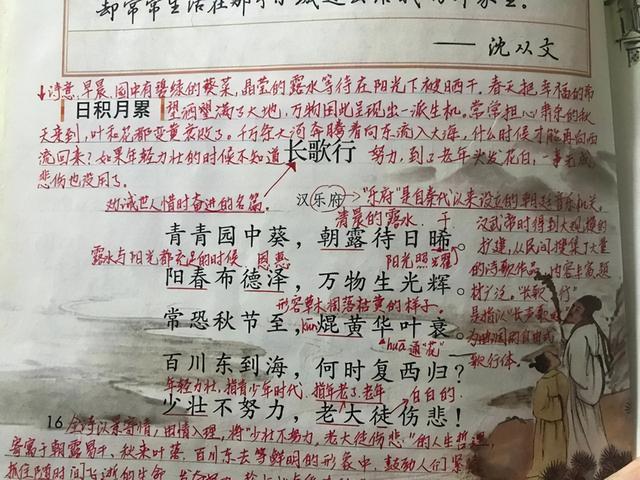 却常常生活在那个
—— 沈从文
诗意:早晨,园中有碧绿的葵菜,晶莹的露水等待在阳光下被晒干。春天把幸福的希
日积月累
望洒满了大地,万物因此呈现出一派生机。常常担心肃杀的秋
天来到,叶和花都变黄衰败了。千万条大河奔腾着向东流入大海,什么时候才能再向西
流回来?如果年轻力壮的时候不知道
长歌行
努力,到了老年头发花白,一事无成
悲伤也没用了。
劝诫世人惜时奋进的名篇。
汉乐府
"乐府"是自秦代以来设立的朝廷音乐机关,
清晨的露水
汉武帝时得到大规模的
青青园中葵,朝露待日晞。
扩建,从民间搜集了大量
露水与阳光都充足的时候
恩惠
阳光照耀
的诗歌作品,内容丰富,题
阳春布德泽,万物生光辉。
材广泛。"长歌行"
形容草木凋落枯黄的样子。
是指以"长声歌咏"
常恐秋节至,焜黄华叶衰。
kūn
huā 通"花"
为曲调的自由式
歌行体。
百川东到海,何时复西归?
年轻力壮,指青少年时代。
指年老了,老年
白白的
少壮不努力,老大徒伤悲!
16
全诗以景寄情,由情入理,将"少壮不努力,老大徒伤悲"的人生哲理,
寄寓于朝露易干、秋来叶落、百川东去等鲜明的形象中,鼓励人们
抓住随时间飞逝的生命